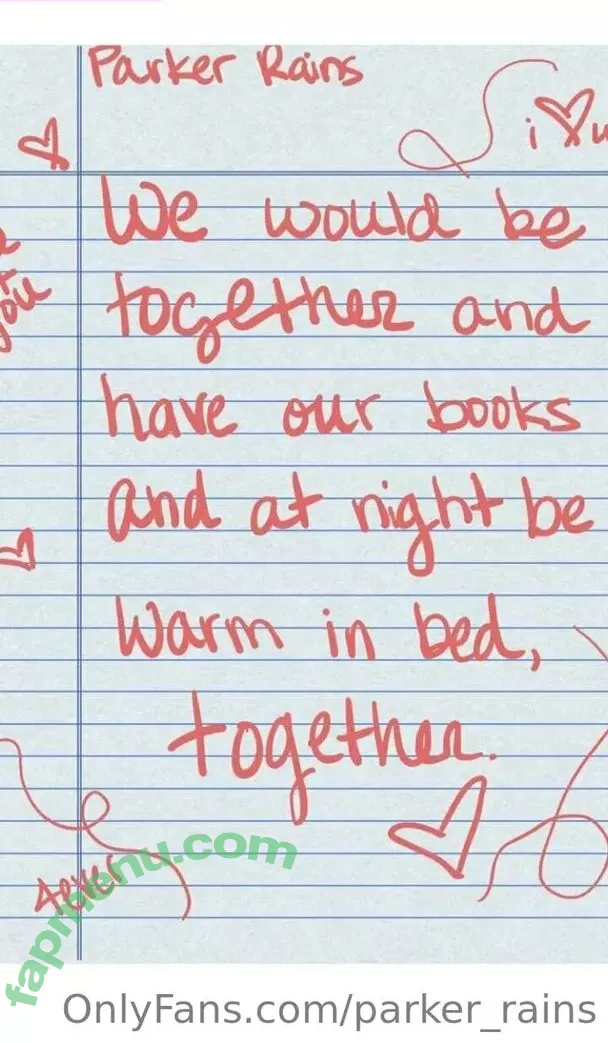 Parker Rains
i u
We would be
together and
have our books
and at night be
warm in bed,
together.
you
4ever
fapmenu.com
OnlyFans.com/parker_rains